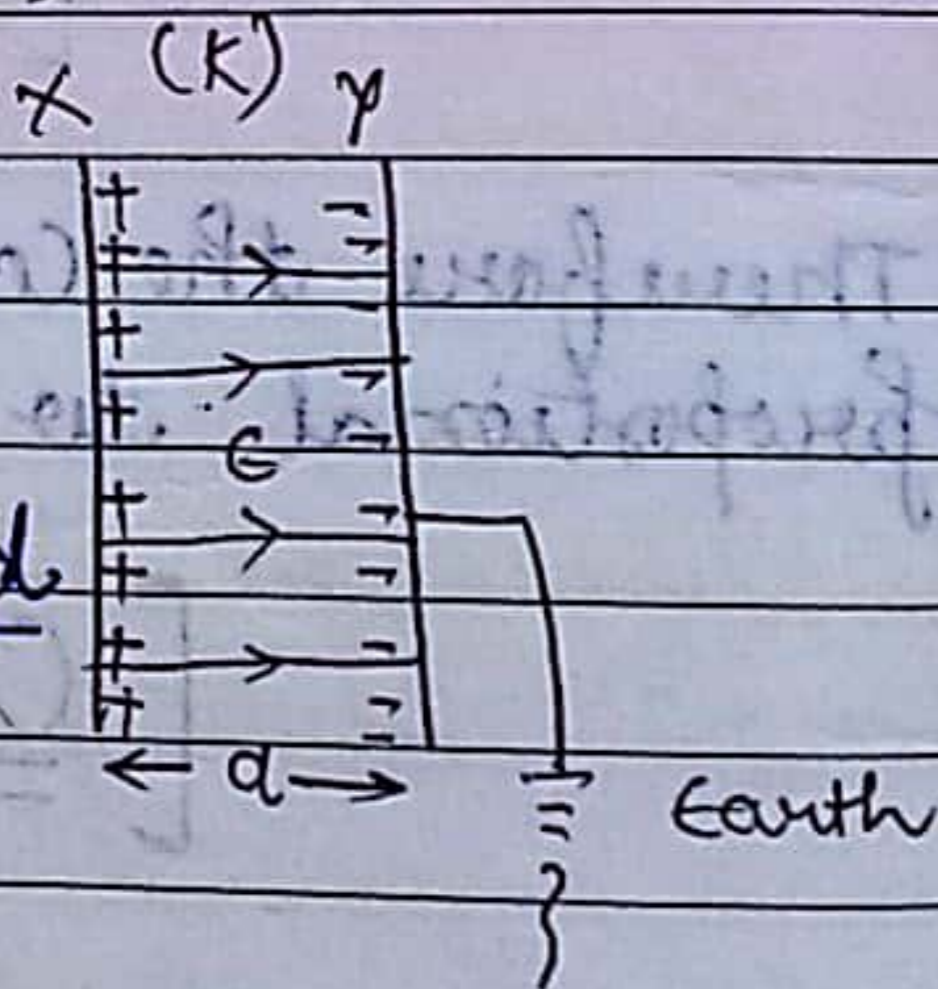 X (K) Y
+ -
+ -
+ -
+ -
E
+ -
+ -
+ -
+ -
← d →
Earth